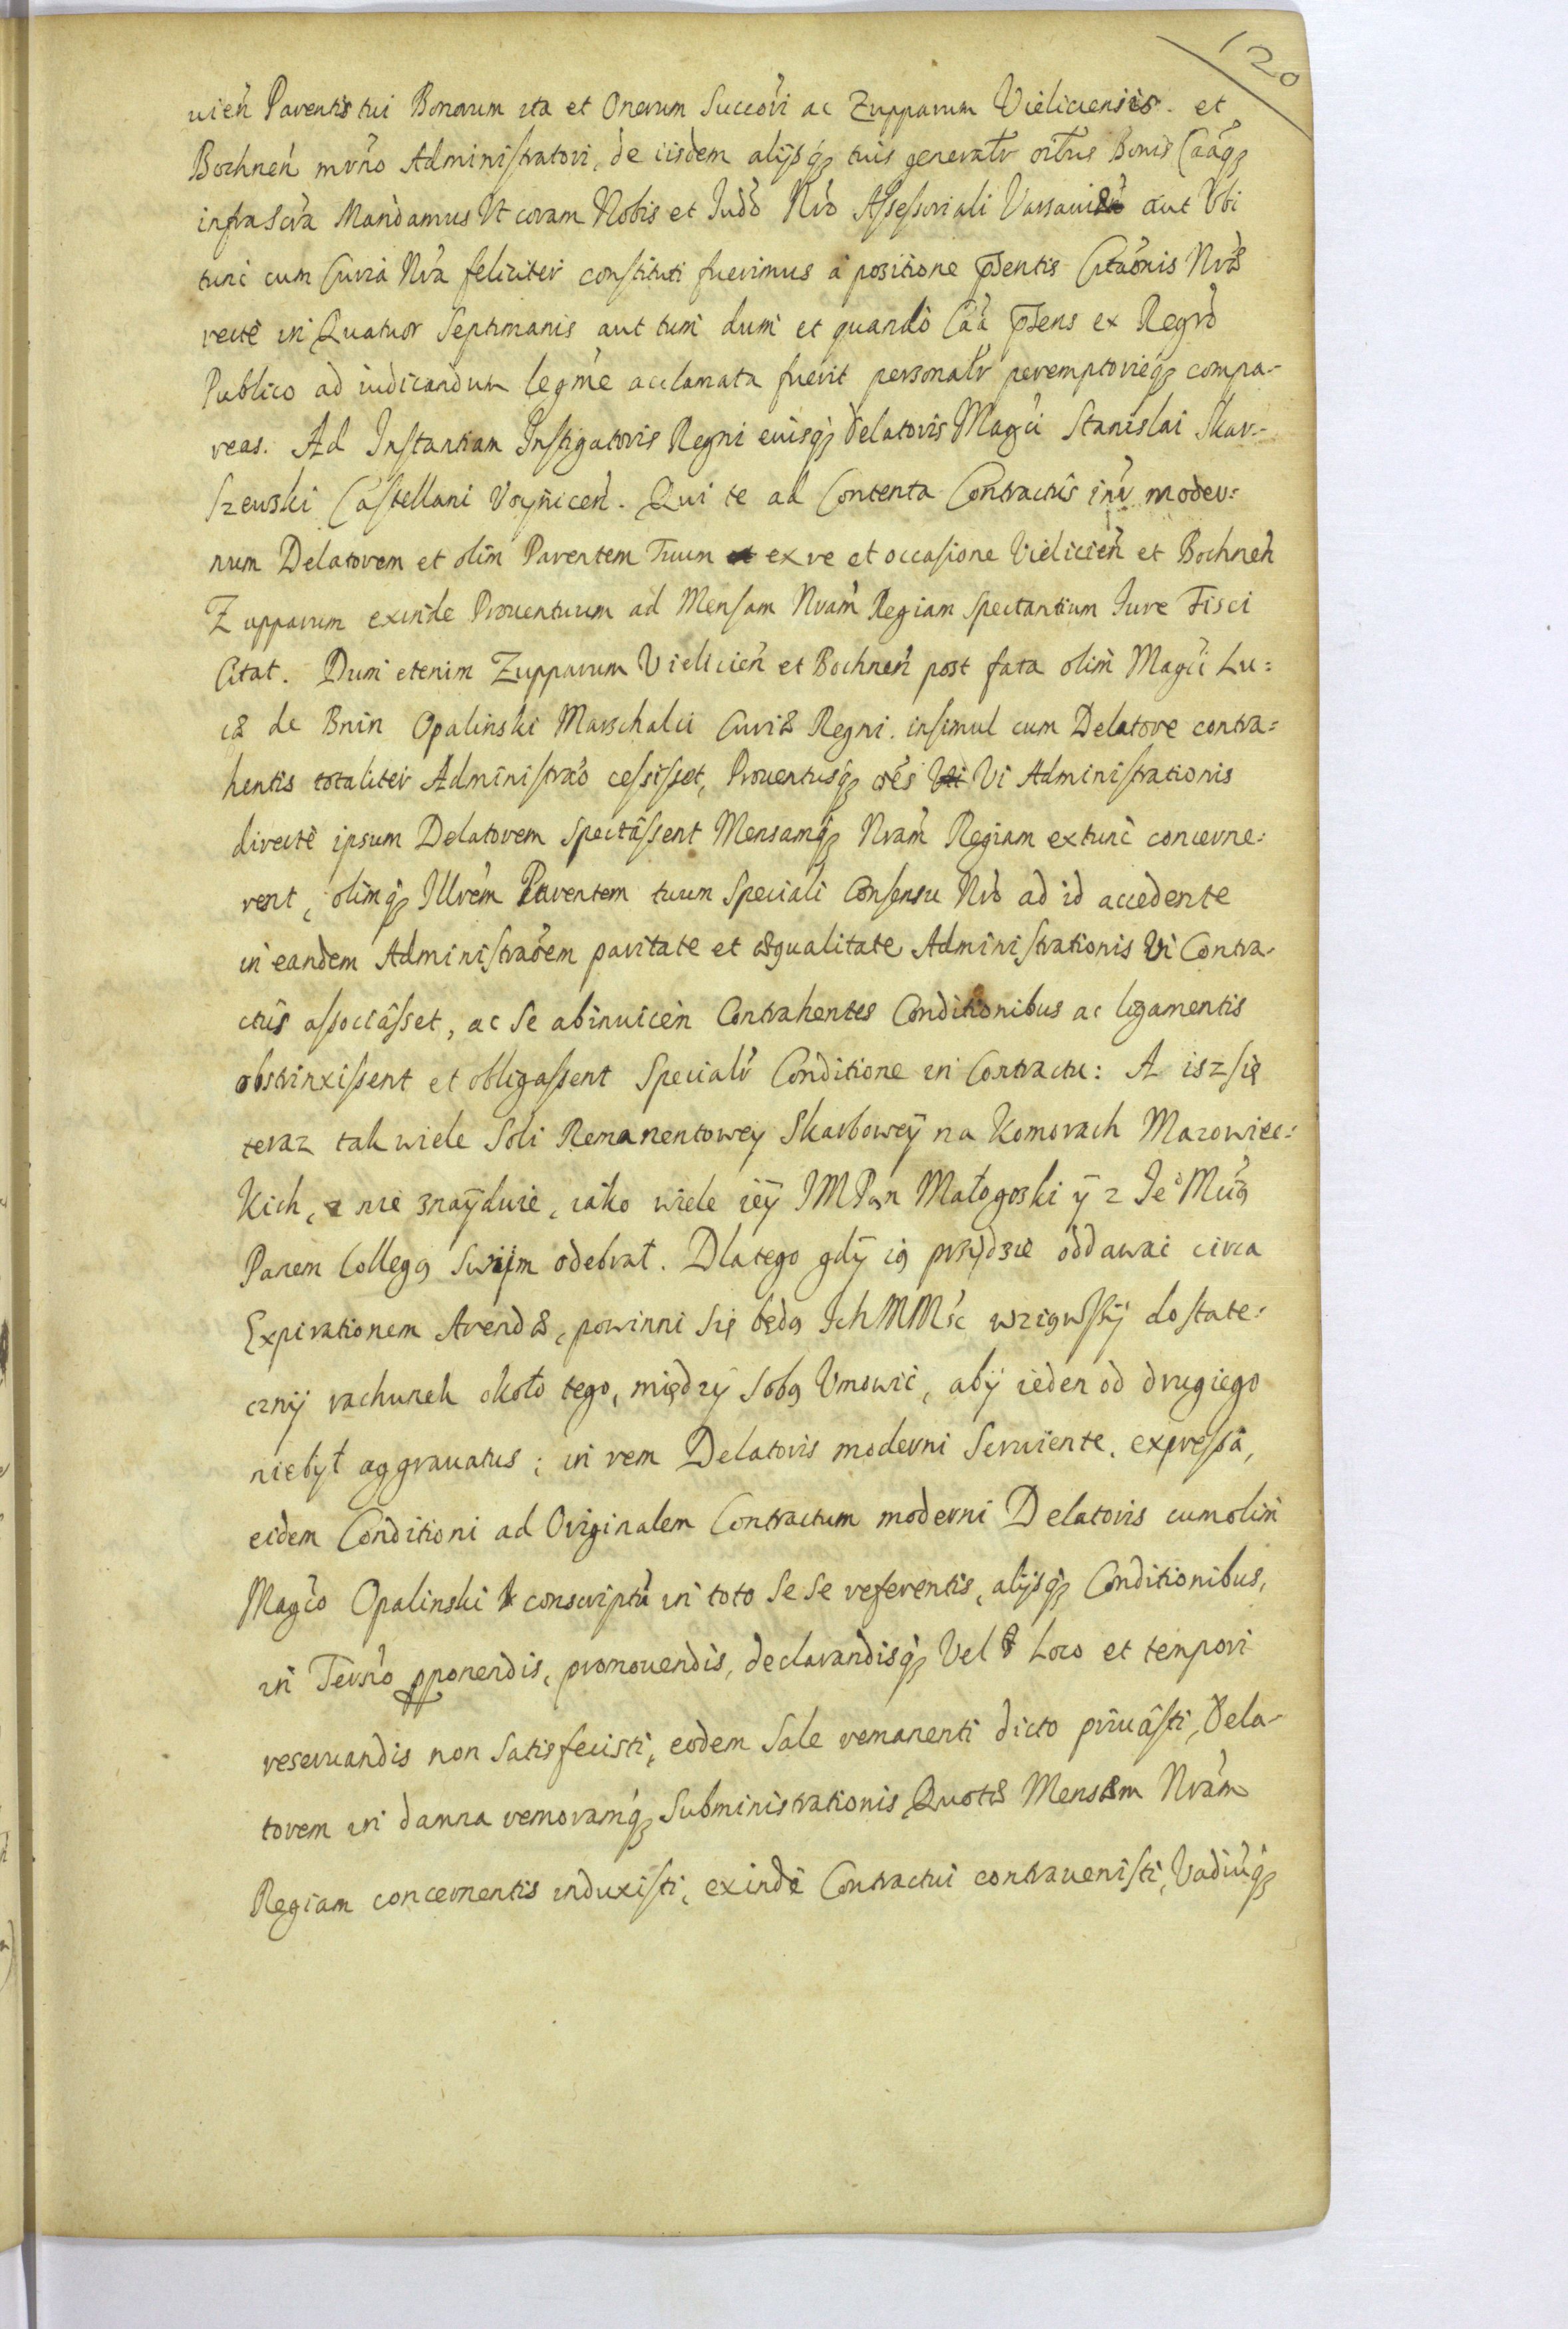 120
uień Parentis tui Bonorum ita et Onerum Succori ac Zupparum Vieliciensis. et
Bochneń mrno Administratori, de iisdem alijsq̨ tuis generalr oibus Bonis Caãq̨
infrascra Mandamus Vt coram Nobis et Judo Nro Assessoriali Varsauiæ aut Vbi
tunc cum Curia Nra feliciter constituti fuerimus a positione pñtis Citaonis Nræ
recte in Quatuor Septimanis aut tum dum et quando Caã pñs ex Regro
Publico ad iudicandum legme acclamata fuerit personalr peremptorieq̨ compa-
reas. Ad Instantiam Instigatoris Regni eiusq̨ Delatoris Magci Stanislai Skar-
szewski Castellani Voyniceń. Qui te ad Contenta Contractûs intr moder:
num Delatorem et olim Parentem Tuum ex re et occasione Vielicień et Bochneń
Zupparum exinde Prouentuum ad Mensam Nram Regiam spectantium Jure Fisci
Citat. Dum etenim Zupparum Vielicień et Bochneń post fata olim Magci Lu:
cæ de Bnin Opalinski Marschalci Curiæ Regni. insimul cum Delatore contra:
hentis totaliter Administrao cessisset, Prouentusq̨ oẽs Vi Administrationis
directe ipsum Delatorem spectâssent Mensamq̨ Nram Regiam extunc concerne:
rent, olimq̨ Illrem Parentem tuum Speciali Consensu Nro ad id accedente
in eandem Administraõem paritate et æqualitate Administrationis Vi Contra-
ctûs associâsset, ac Se abinuicem Contrahentes Conditionibus ac ligamentis
obstrinxissent et obligassent Specialr Conditione in Contractu: A isz się
teraz tak wiele Soli Remanentowey Skarbowey na Komorach Mazowiec:
kich, nie znaÿduie, iako wiele ieÿ JMPan Małogoski ÿ z Jeo Mcią
Panem Collegą Swÿm odebrał. Dlatego gdÿ ią przÿdzie oddawać circa
Expirationem Arendæ, powinni się będą Ich MMść wziąwszÿ dostate:
cznÿ rachunek około tego, międzÿ sobą Vmowić, abÿ ieden od drugiego
niebÿł aggrauatus; in rem Delatoris moderni Seruiente, expressâ,
eidem Conditioni ad Originalem Contractum moderni Delatoris cum olim
Magco Opalinski conscriptu in toto Se se referentis, alijsq̨ Conditionibus,
in Termo pponendis, promouendis, declarandisq̨ Vel Loco et tempori
reseruandis non Satisfecisti, eodem Sale remanenti dicto priuâsti, Dela-
torem in damna remoramq̨ Subministrationis Quotæ Mensam Nram
Regiam concernentis induxisti, exinde Contractui contrauenisti, Vadiuq̨